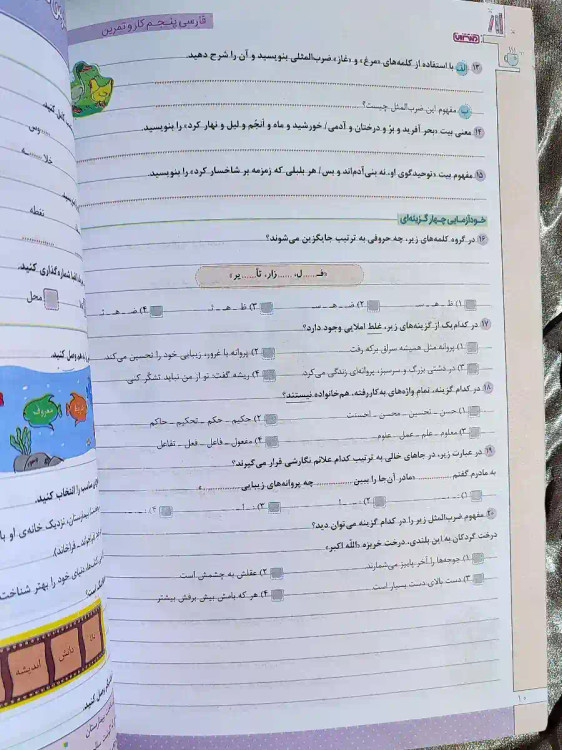 فارسی پنجم کار و تمرین
۱۳ الف) با استفاده از کلمه‌های «مرغ» و «غاز» ضرب‌المثلی بنویسید و آن را شرح دهید.
ب) مفهوم این ضرب‌المثل چیست؟
۱۴ معنی بیت «بحر آفرید و برّ و درختان و آدمی / خورشید و ماه و انجُم و لیل و نهار کرد» را بنویسید.
۱۵ مفهوم بیت «توحیدگوی او، نه بنی‌آدم‌اند و بس / هر بلبلی که زمزمه بر شاخسار کرد» را بنویسید.
خودآزمایی چهارگزینه‌ای
۱۶ در گروه کلمه‌های زیر، چه حروفی به ترتیب جایگزین می‌شوند؟
«فـ......ل، ......زار، تأ......یر»
۱) ظ ـ هـ ـ سـ
۲) ضـ ـ هـ ـ سـ
۳) ظ ـ هـ ـ ثـ
۴) ضـ ـ هـ ـ ثـ
۱۷ در کدام‌یک از گزینه‌های زیر، غلط املایی وجود دارد؟
۱) پروانه مثل همیشه سراق برکه رفت.
۲) پروانه با غرور، زیبایی خود را تحسین می‌کند.
۳) در دشتی بزرگ و سرسبز، پروانه‌ای زندگی می‌کرد.
۴) ریشه گفت: تو از من نباید تشکّر کنی.
۱۸ در کدام گزینه، تمام واژه‌های به‌کاررفته، هم‌خانواده نیستند؟
۱) حسن ـ تحسین ـ محسن ـ احسنت
۲) حکیم ـ حکم ـ تحکیم ـ حاکم
۳) معلوم ـ علم ـ عمل ـ علوم
۴) مفعول ـ فاعل ـ فعل ـ تفاعل
۱۹ در عبارت زیر، در جاهای خالی به ترتیب کدام علائم نگارشی قرار می‌گیرند؟
به مادرم گفتم ........ «مادر آن‌جا را ببین ........ چه پروانه‌های زیبایی ........»
۲۰ مفهوم ضرب‌المثل زیر را در کدام گزینه می‌توان دید؟
درخت گردکان به این بلندی، درخت خربزه، «اللّه اکبر»
۱) جوجه‌ها را آخر پاییز می‌شمارند.
۲) عقلش به چشمش است
۳) دست بالای دست بسیار است
۴) هر که بامش بیش برفش بیشتر
۱۰
وس
نقطه
شماره گذاری کنید.
مجل
وصل کنید.
معروف
مناسب را انتخاب کنید.
بیمارستان، نزدیک خانه‌ی او
دنیای خود را بهتر شناخت
دانش
اندیشه
وصل کنید.
بیمارستان